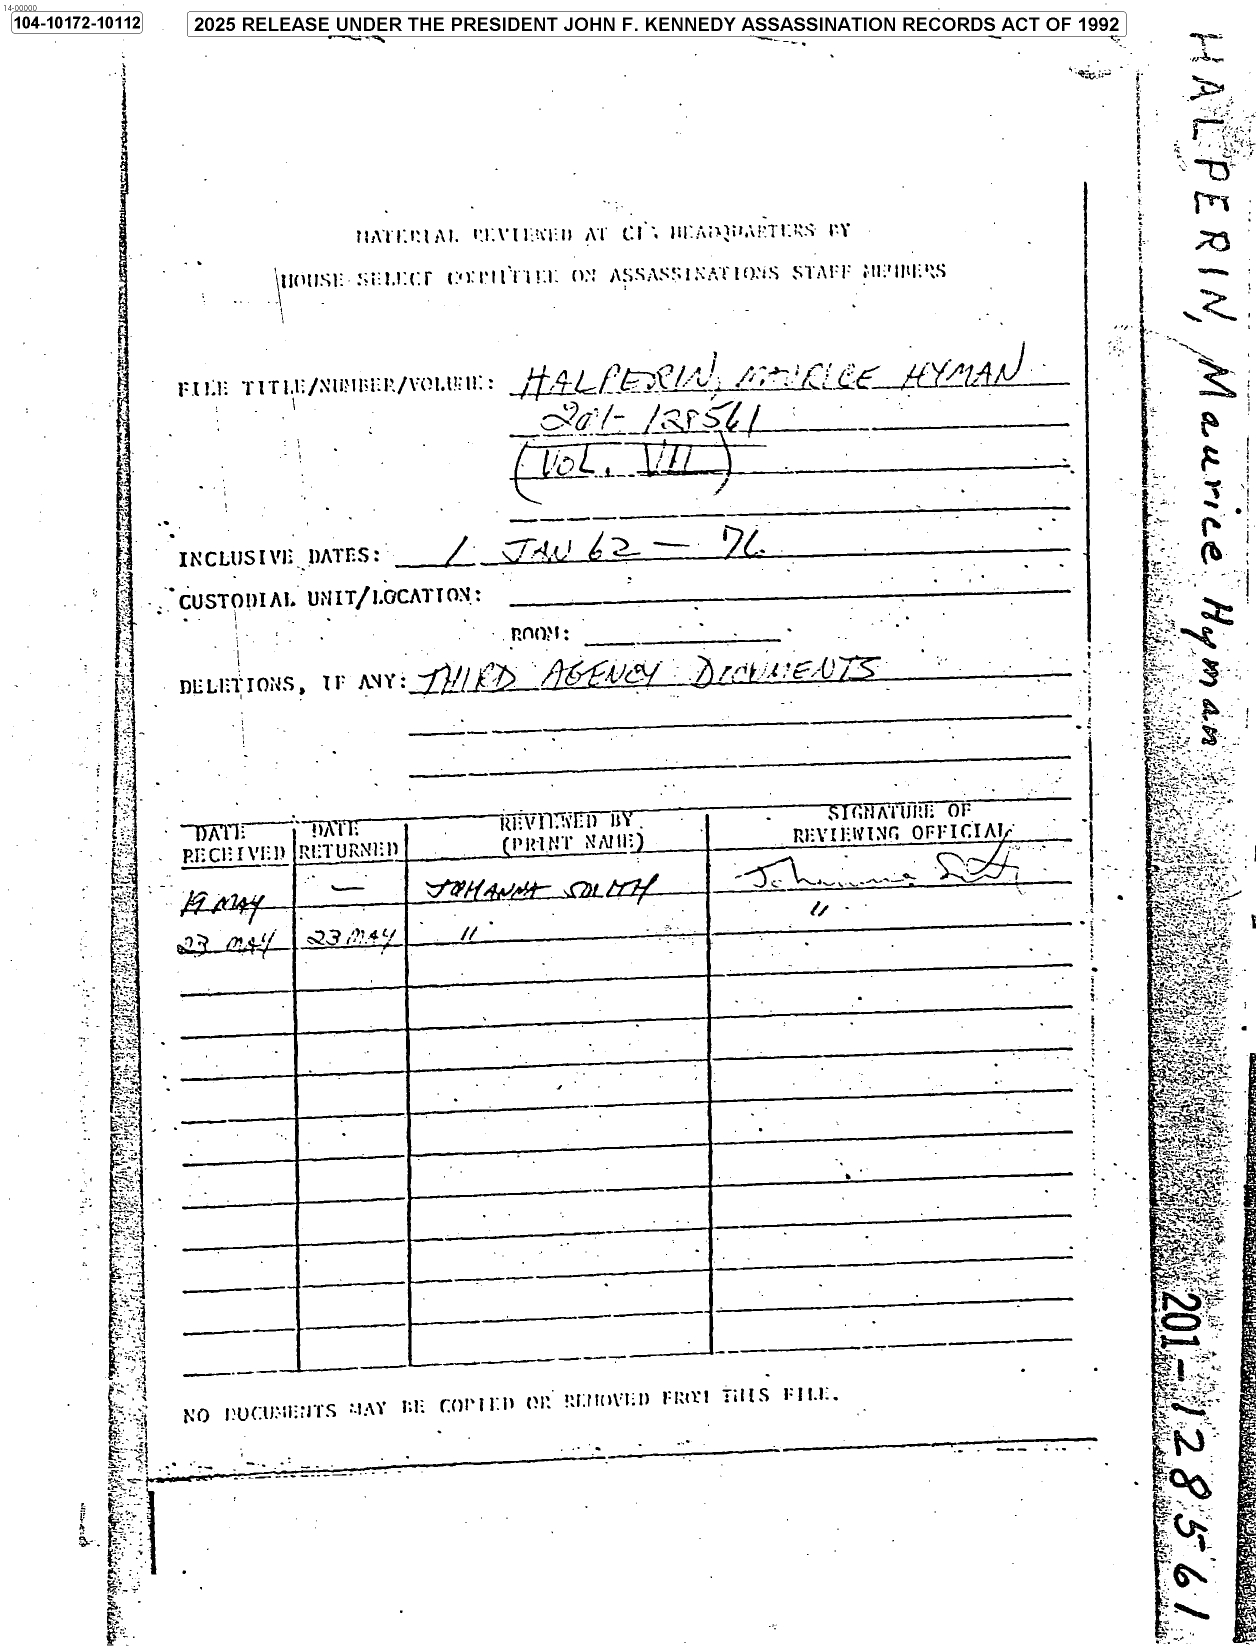 14-00000
104-10172-10112
2025 RELEASE UNDER THE PRESIDENT JOHN F. KENNEDY ASSASSINATION RECORDS ACT OF 1992
MATERIAL REVIEWED AT CIA HEADQUARTERS BY
HOUSE SELECT COMMITTEE ON ASSASSINATIONS STAFF MEMBERS
FILE TITLE/NUMBER/VOLUME: HALPERIN, MAURICE HYMAN
201-128561
(VOL. VII)
INCLUSIVE DATES: 1 JAN 62 — 76
CUSTODIAL UNIT/LOCATION:
ROOM:
DELETIONS, IF ANY: THIRD AGENCY DOCUMENTS
DATE RECEIVED DATE RETURNED REVIEWED BY (PRINT NAME) SIGNATURE OF REVIEWING OFFICIAL
19 MAY — JOHANNA SMITH Johanna Smith
23 MAY 23 MAY " "
NO DOCUMENTS MAY BE COPIED OR REMOVED FROM THIS FILE.
HALPERIN, Maurice Hyman
201-128561